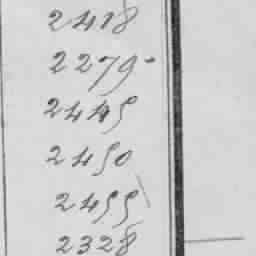 2418
2279
2449
2450
2455
2328